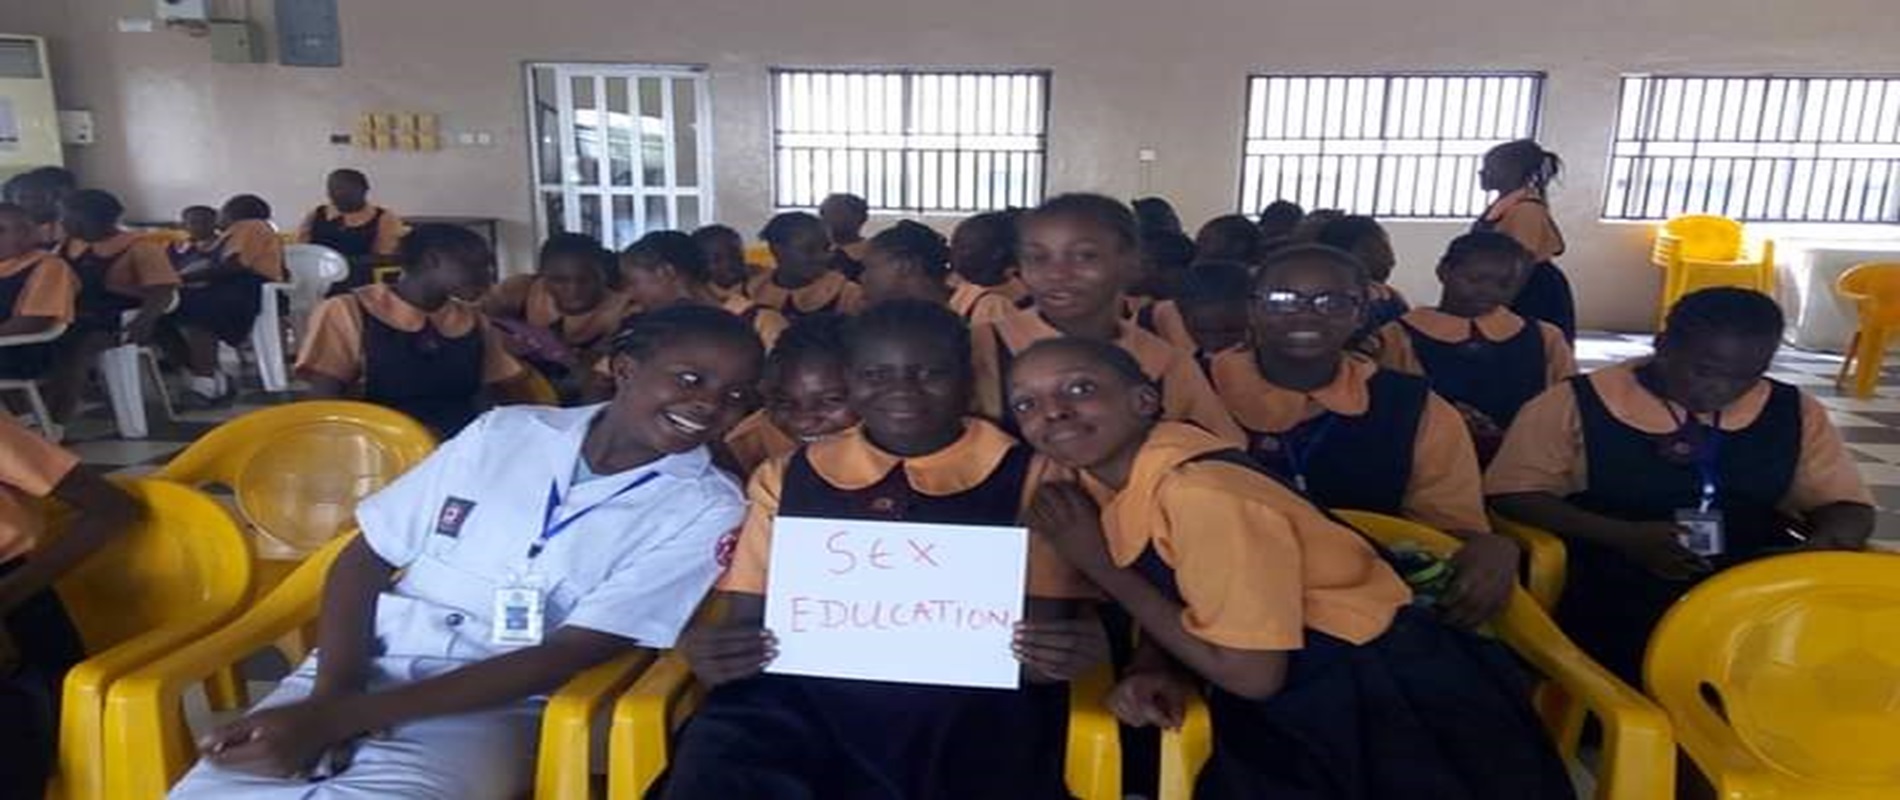 SEX
EDUCATION